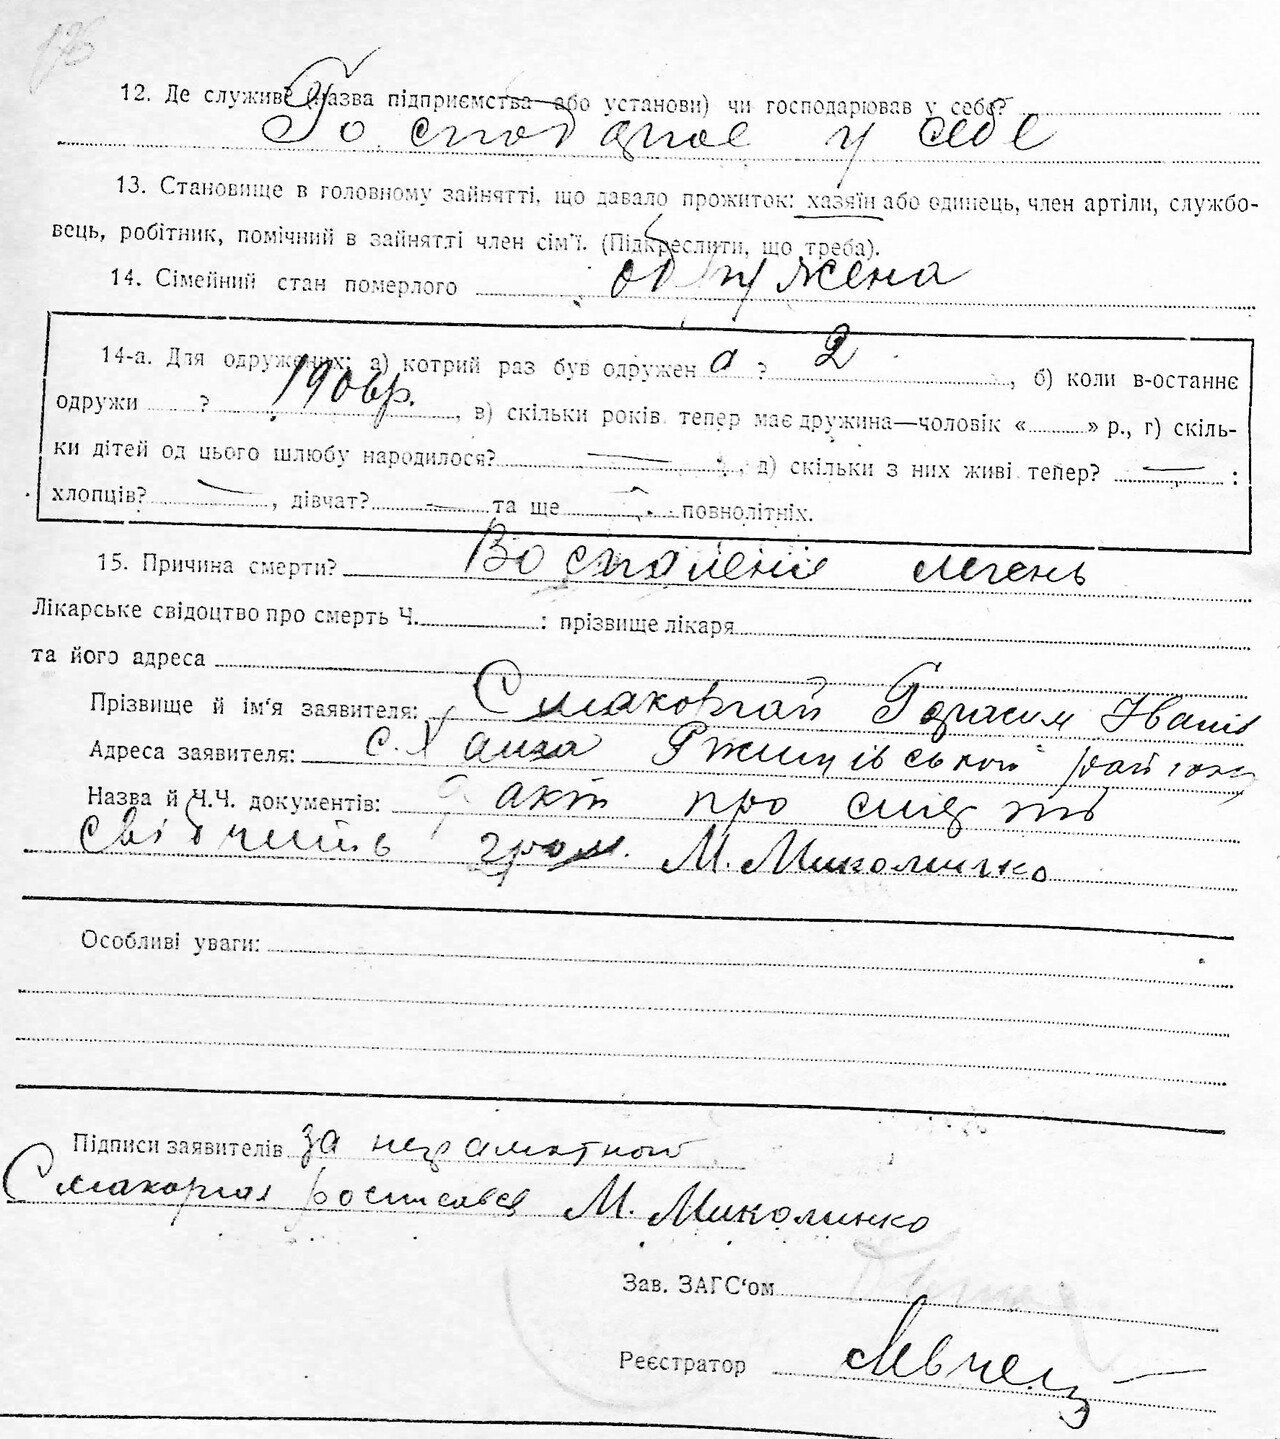 176
12. Де служив (назва підприємства або установи) чи господарював у себе?
Господарює у себе
13. Становище в головному зайнятті, що давало прожиток: хазяїн або одинець, член артіли, службо-
вець, робітник, помічний в зайнятті член сім'ї. (Підкреслити, що треба).
14. Сімейний стан померлого одружена
14-а. Для одружених: а) котрий раз був одружен а ? 2 , б) коли в-останнє
одружи ? 1906р. , в) скільки років тепер має дружина—чоловік « » р., г) скіль-
ки дітей од цього шлюбу народилося? — , д) скільки з них живі тепер? — :
хлопців? — , дівчат? — та ще — повнолітніх.
15. Причина смерти? Воспаленіє легень
Лікарське свідоцтво про смерть Ч. : прізвище лікаря
та його адреса
Прізвище й ім'я заявителя: Герасим Іванів
Адреса заявителя: с. Ржищівського району
Назва й Ч.Ч. документів: акт про смерть
свідчить гром. М. Миколенко
Особливі уваги:
Підписи заявителів за неграмотного
росписався М. Миколенко
Зав. ЗАГС'ом
Реєстратор